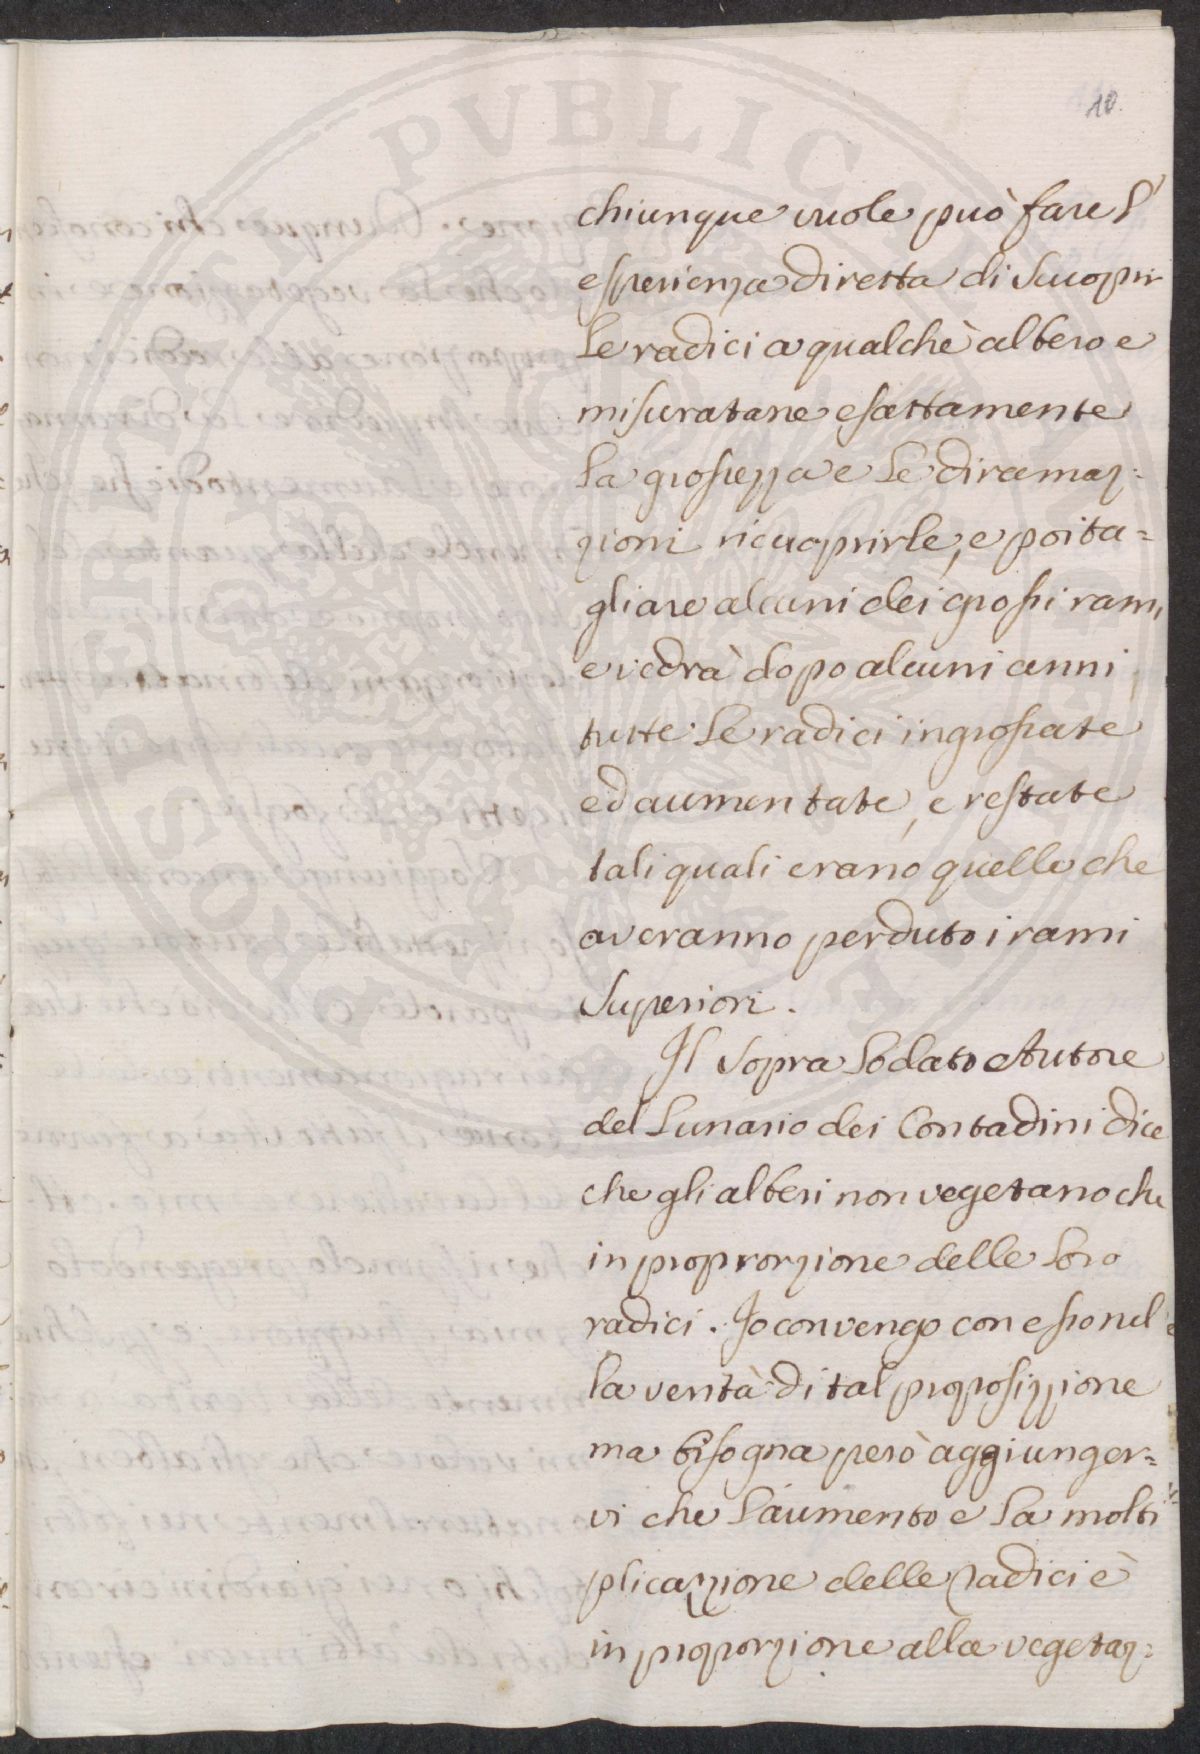 10.
chiunque vuole può fare l'
esperienza diretta di scuoprir
le radici a qualchè albero e
misuratane esattamente
la grossezza e le diramaz:
zioni ricuoprirle, e poi ta=
gliare alcuni dei grossi rami
e vedrà dopo alcuni anni,
tutte le radici ingrossate
ed aumentate, e restate
tali quali erano quelle che
averanno perduto i rami
superiori.
Il sopra lodato Autore
del Lunario dei Contadini dice
che gli alberi non vegetano che
in proprorzione delle loro
radici. Io convengo con esso nel
la verità di tal proposizzione
ma bisogna però aggiunger=
vi che l'aumento e la molti
plicazzione delle radici è
in proporzione alla vegetaz: